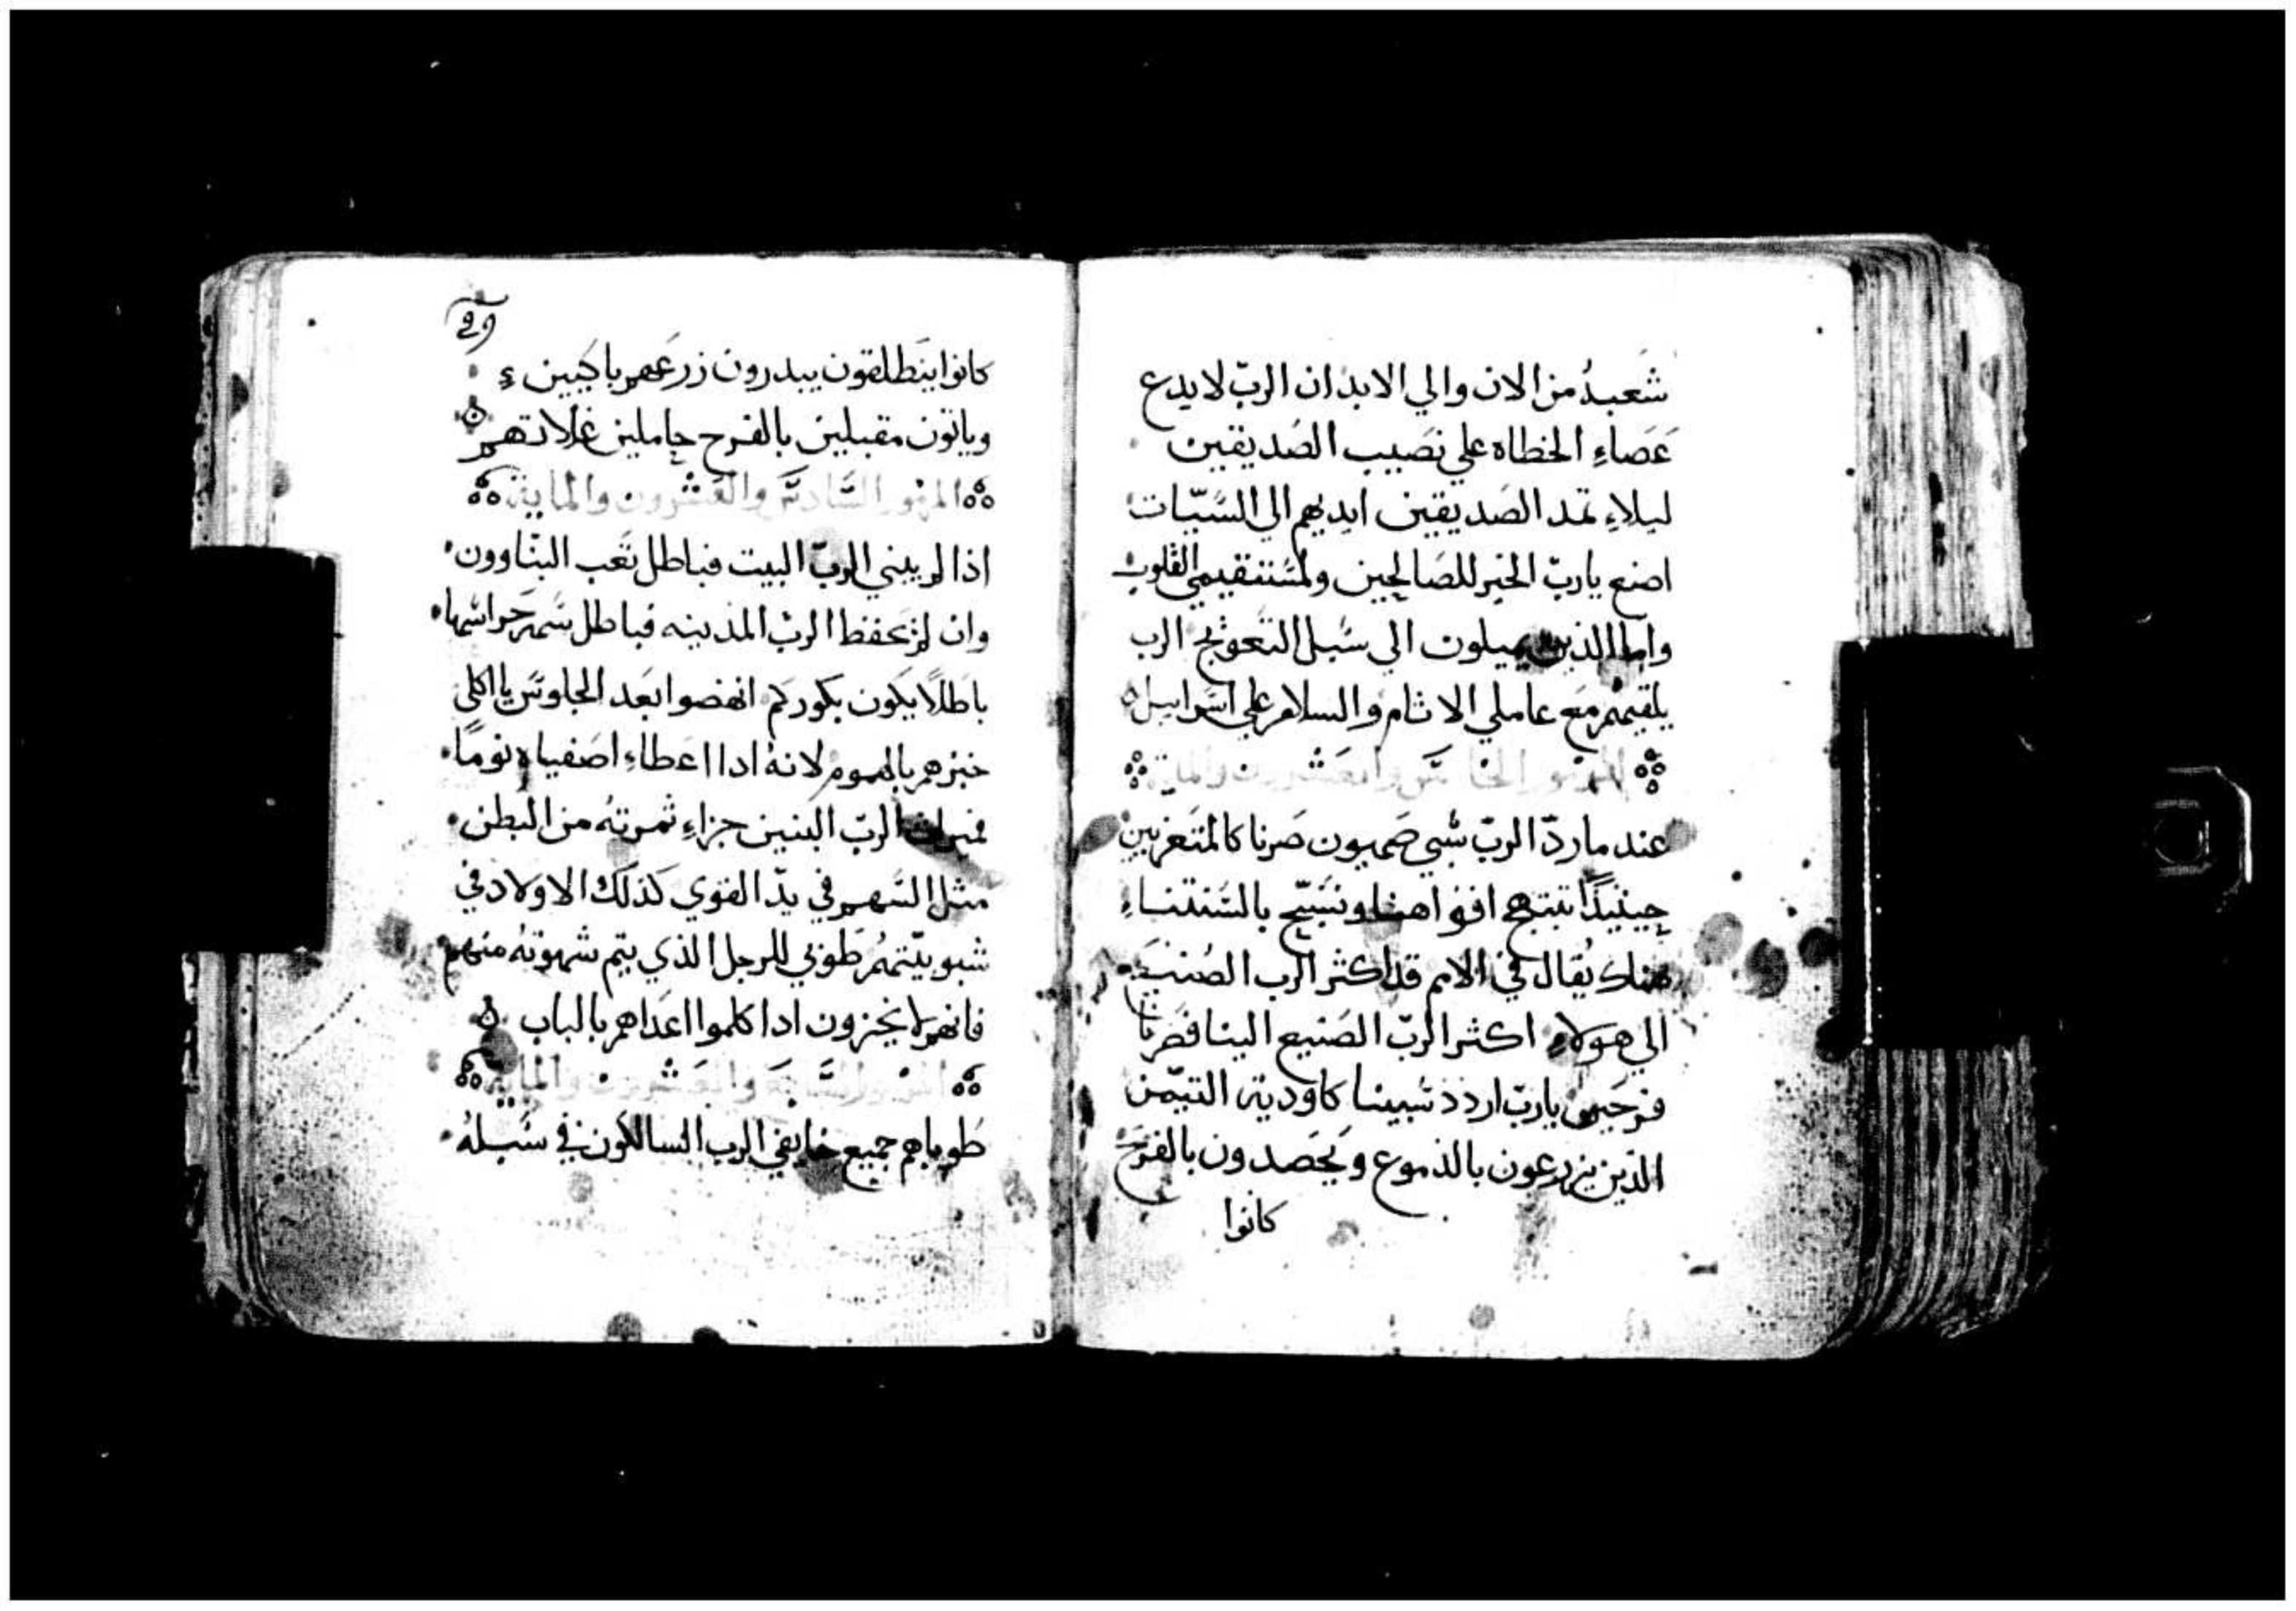 شعبه من الان والي الابد ان الربّ لا يدع
عَصاءِ الخطاه علي نصَيب الصَديقين
ليلاءِ تمد الصَديقين ايديهم الي السَّيّات
اصنع يا ربّ الخير للصَالحين ولمسَتقيمي القلوب
واما الذين يميلون الي سَبل التعويج الرب
يلقيهم مَع عاملي الاثام والسلام علي اسَراييل
المزمور الخامسَ والعَشرون والمايه
عند ما ردّ الربّ سَبي صَهيون صَرنا كالمتَعزيين
حينيدًا تبتهج افواهنا ونسَبّح بالسَنتناءِ
هناك يُقال في الامم قد اكثر الرب الصَنيع
الي هولاءِ اكثر الربّ الصَنيع الينا فصَرنا
فرحين يا ربّ اردد سَبينا كاودية التيمّن
الذين يزرعون بالدموع ويَحصَدون بالفرَح
كانوا
كانوا ينَطلقون يبدرون زرعَهم باكيين
وياتون مقبلين بالفرح حاملين غلاتهم
المزمور السَّادسَ والعَشرون والمايه
اذا لم يبني الربّ البيت فباطل تَعب البنّاوون
وان لم يَحفظ الربّ المدينه فباطل سَهَر حراسَها
باطَلاً يكون بكوركم انهضوا بعَد الجلوسَ يا اكلي
خبزهم بالهموم لانهُ ادا اعَطاءِ اصَفياه نومًا
ميراث الربّ البنين جزاءِ ثمرتهُ من البطن
مثل السَهم في يدّ القوي كذلك الاولاد في
شبوبيّتهمُ طوبي للرجل الذي يتم شهوتهُ منهم
فانهم لا يخزون ادا كلموا اعَداهم بالباب
المزمور السَّابعَ والعَشرون والمايه
طَوباهم جميع خايفي الرب السالكون في سَبله